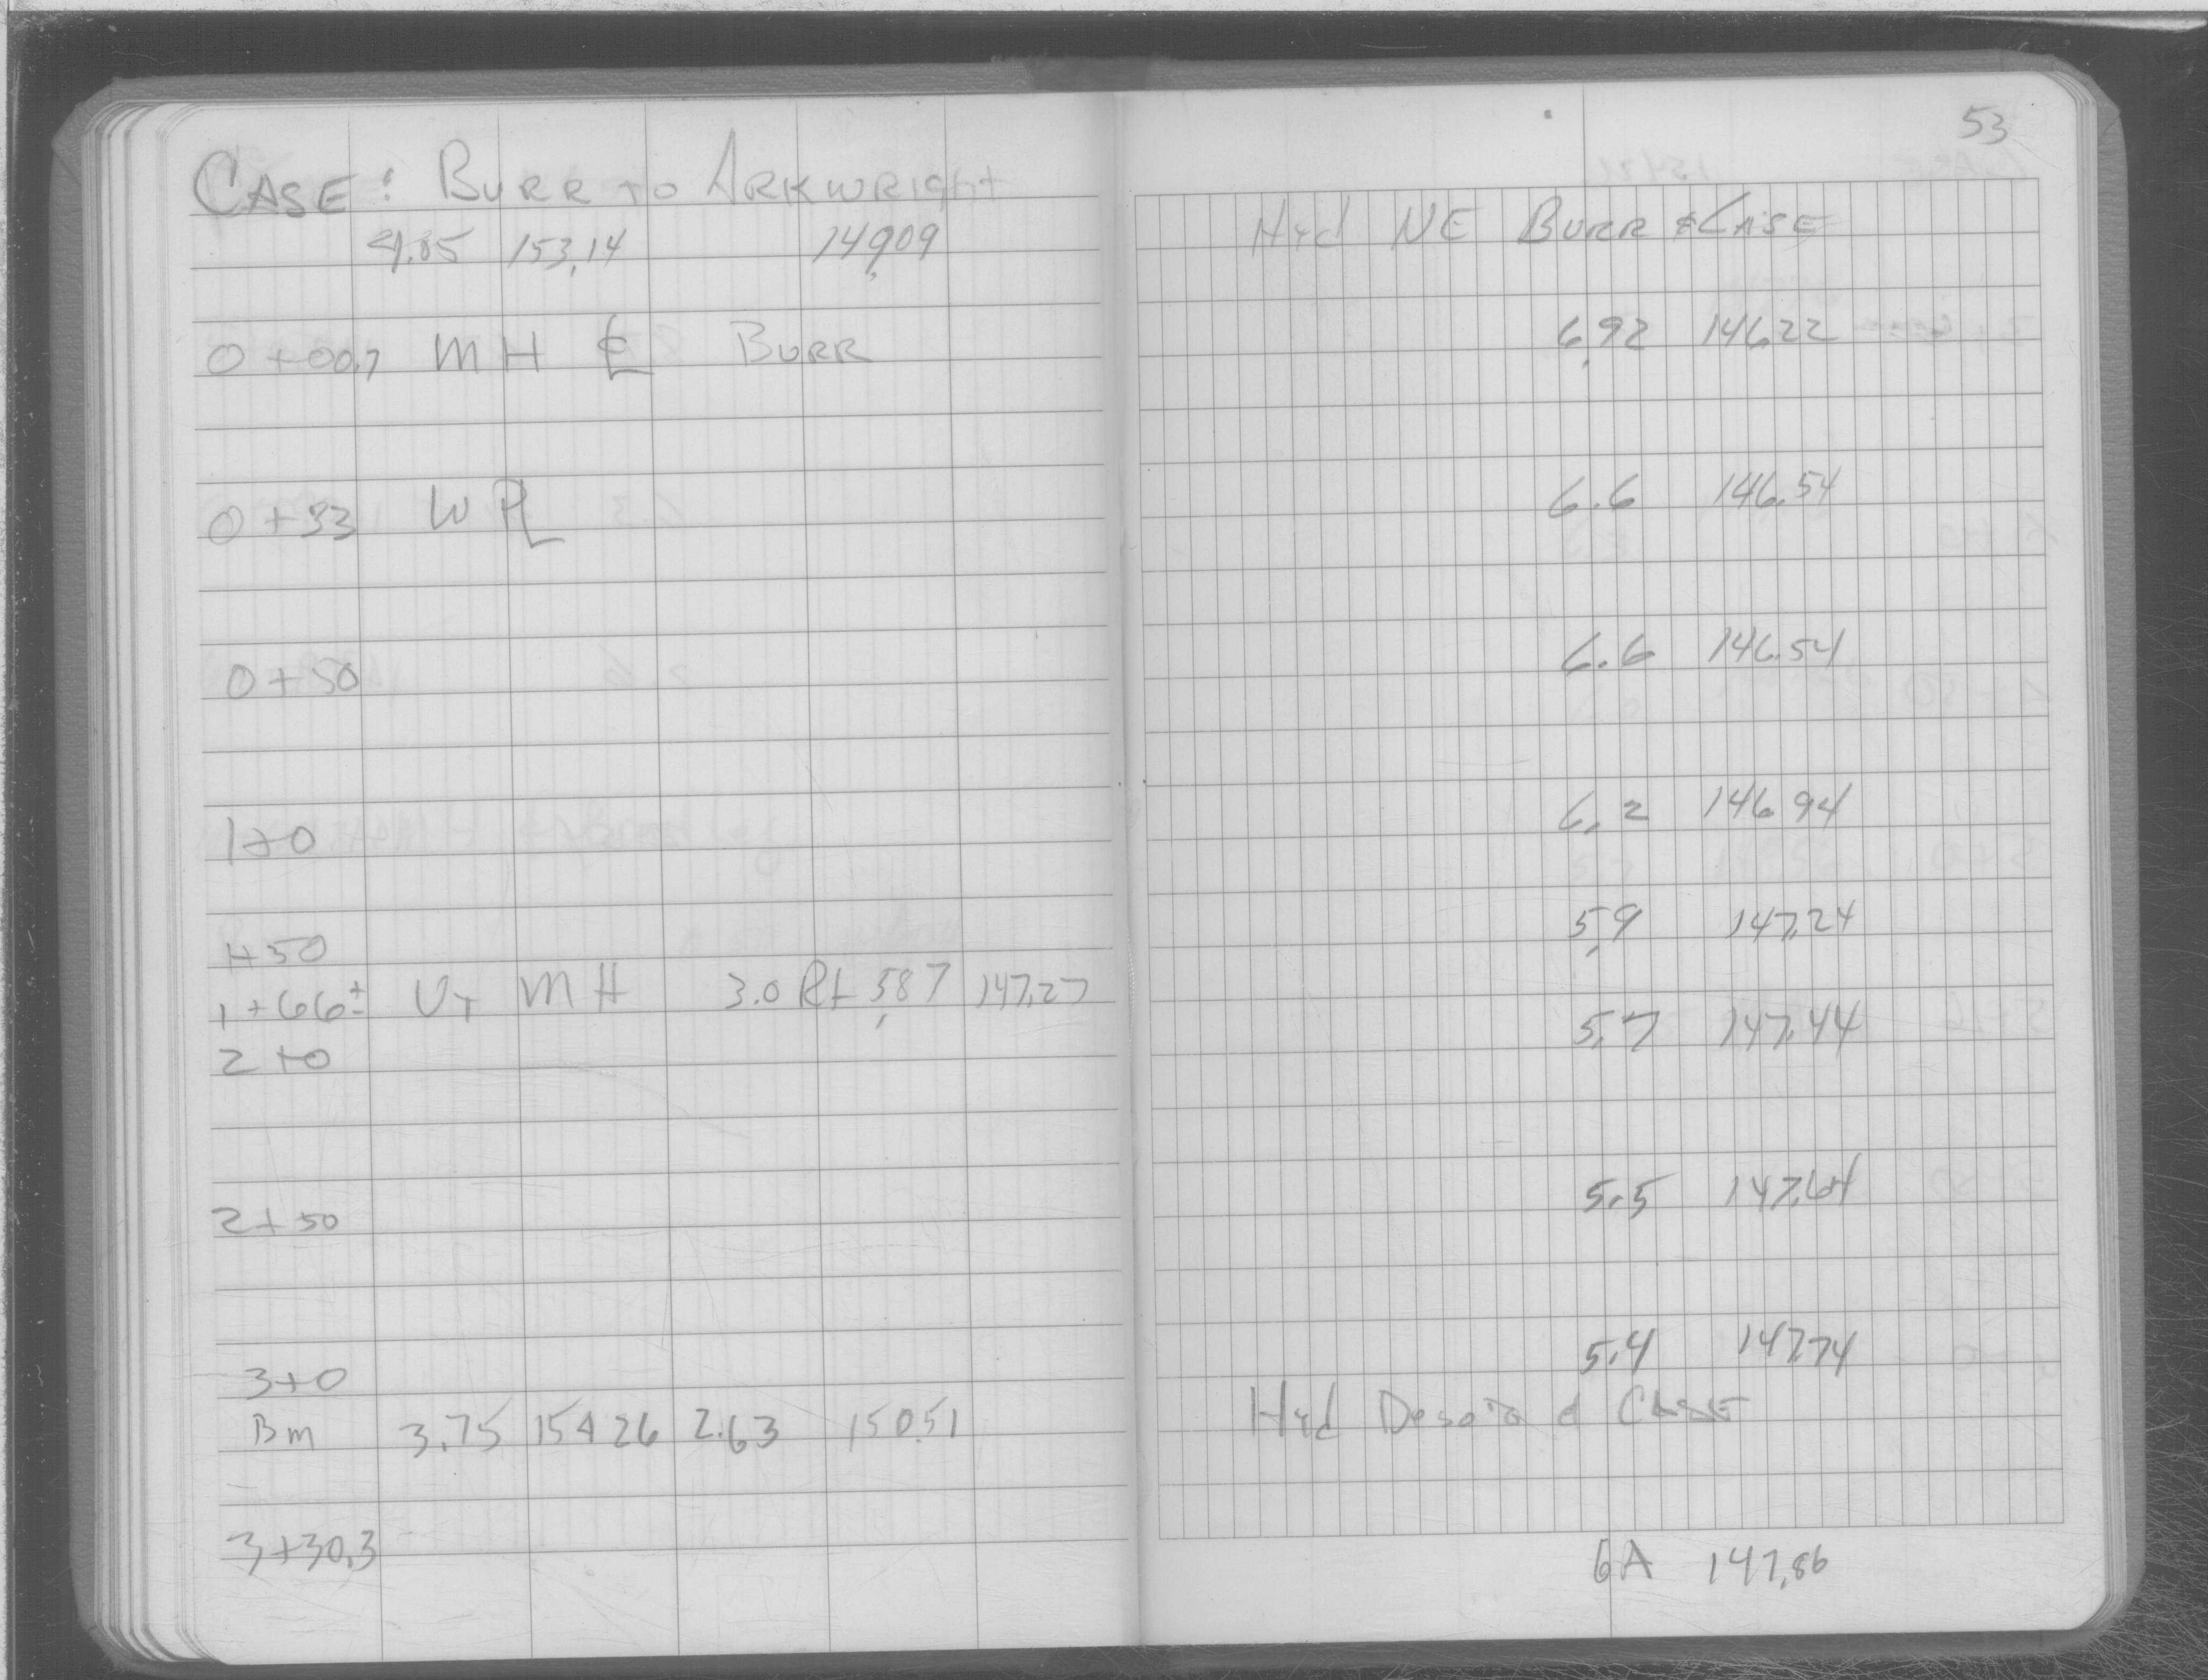 CASE: BURR TO ARKWRIGHT
4.05 153.14 149.09
0+00.7 MH ℄ BURR
0+33 W PL
0+50
1+0
1+50
1+66± UT MH 3.0 Rt 5.87 147.27
2+0
2+50
3+0
BM 3.75 154.26 2.63 150.51
3+30.3
53
Hyd NE BURR & CASE
6.92 146.22
6.6 146.54
6.6 146.54
6.2 146.94
5.9 147.24
5.7 147.44
5.5 147.64
5.4 147.74
Hyd Desoto & CASE
6.4 147.86